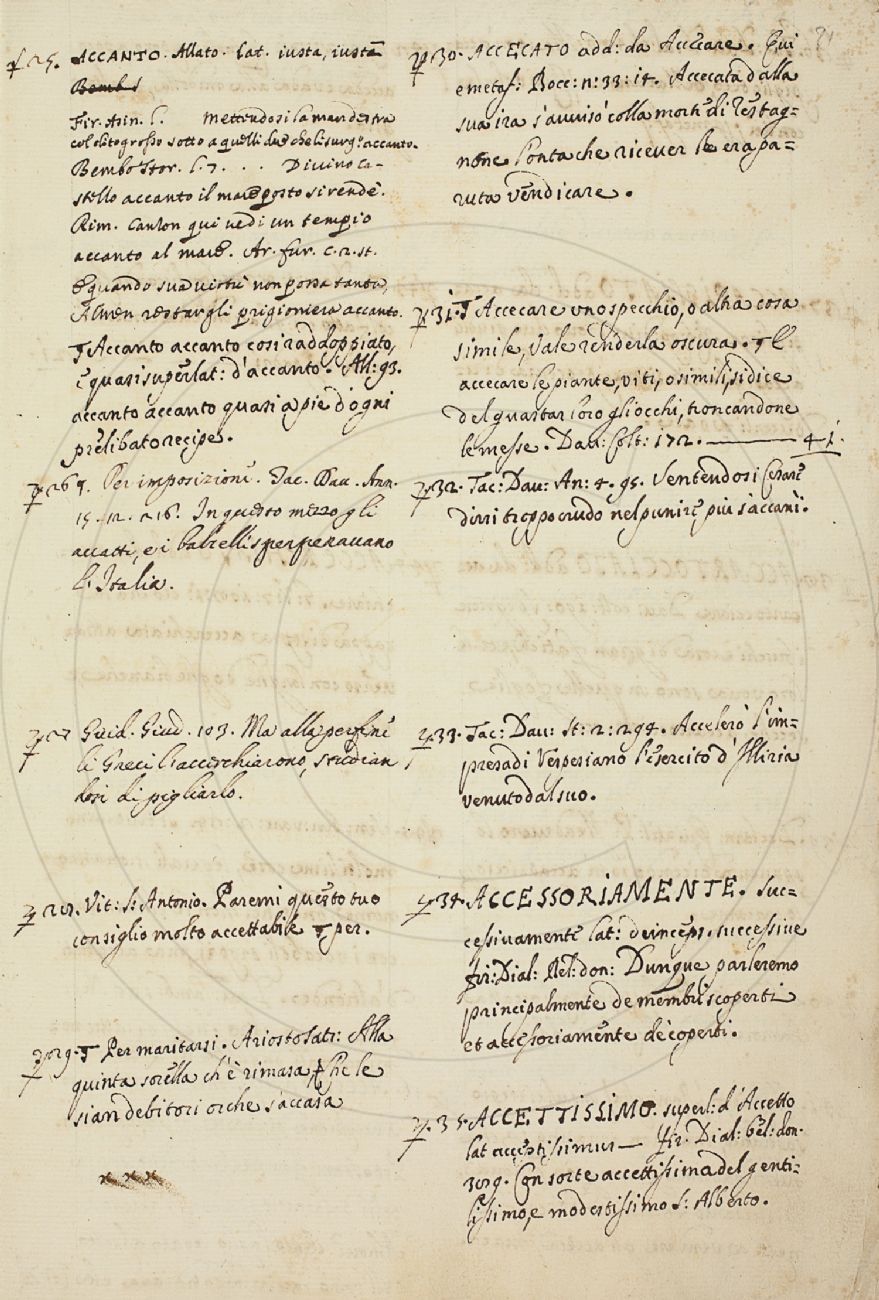 25. ACCANTO. Allato. Lat. iusta, iusta
Bembo
Fir. Asin. l. mettendosi la man destra
col dito grosso sotto a quelli due che li surg.º accanto.
Bembo Stor. l. 7 . . . Divino ca-
stello accanto il mare posto si rende.
Rim. Canzon qui vedi un tempio
accanto al mare. Ar. fur. c. 2. st.
E quando sua virtù non possa tanto,
Almen restargli prigioniera accanto.
¶ Accanto accanto così raddoppiato,
è quasi superlat: d'accanto. All: 93.
accanto accanto quasi a piè d'ogni
prelibato recipe.
26 ¶. Per imposizione. Tac. Dav. Ann.
15. 12. 216. In questo mezzo gli
accatti, e i balzelli sperperavano
l'Italia.
27 Guid. Giud. 103. Ma alla perfine
li Greci l'accerchiarono, studian
dosi di pigliarlo.
28. Vit: S: Antonio. Paremi questo tuo
consiglio molto accettabile ¶ per.
29. ¶ Per maritarsi. Ariosto Satr: Alla
quinta sorella ch'è rimasa, Che le
siam debitori or che s'accasa
x x x
30. ACCECATO add: da Accecare. Qui
e metaf: Bocc: n: 33: 14. Accecata dalla
sua ira s'avvisò colla morte di Restag-
none l'onta che ricever le era pa-
ruta vendicare.
31. ¶ Accecare uno specchio, o altra cosa
simile, vale renderla oscura. ¶ E
accecare le piante, viti, o simili, si dice
del guastar loro gli occhi, troncandone
le messe. Dav: Colt: 172. 41.
32. Tac: Dav: An: 4. 95. Ventendosi Cesare
dirsi troppo crudo nel punire, più s'accanì.
33. Tac: Dav: St: 2: 294. Accelerò l'im-
presa di Vespasiano l'esercito d'Illiria
venuto dal suo.
34. ACCESSORIAMENTE. Suc-
cessivamente lat: deinceps. successive
fir: Dial: Bel: don: Dunque parleremo
principalmente de membri scoperti
et accessoriamente de' coperti.
35. ACCETTISSIMO. superl: d'Accetto
lat acceptissimus — fir. Dial: bel: don.
309. Con sorte accettissima del genti-
lissimo, e modestissimo S: Alberto.